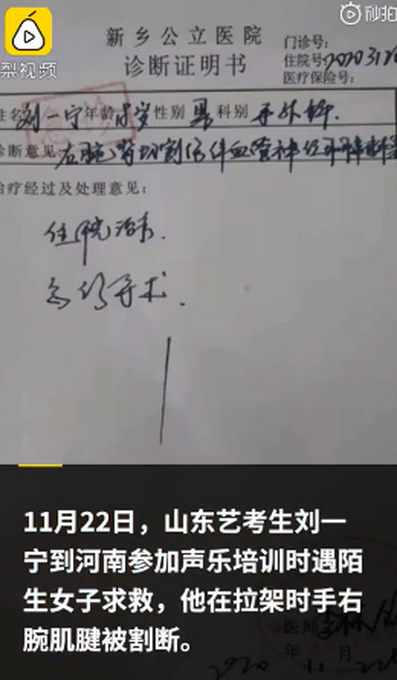 梨视频
秒拍
新乡公立医院
诊断证明书
门诊号:
住院号:2020312
医疗保险号:
姓名 刘一宁 年龄 岁 性别 男 科别 手外科
诊断意见 右腕 切割伤伴血管神经
治疗经过及处理意见:
住院治疗.
急行手术.
11月22日，山东艺考生刘一
宁到河南参加声乐培训时遇陌
生女子求救，他在拉架时手右
腕肌腱被割断。
医师
年 月
2020 11 22